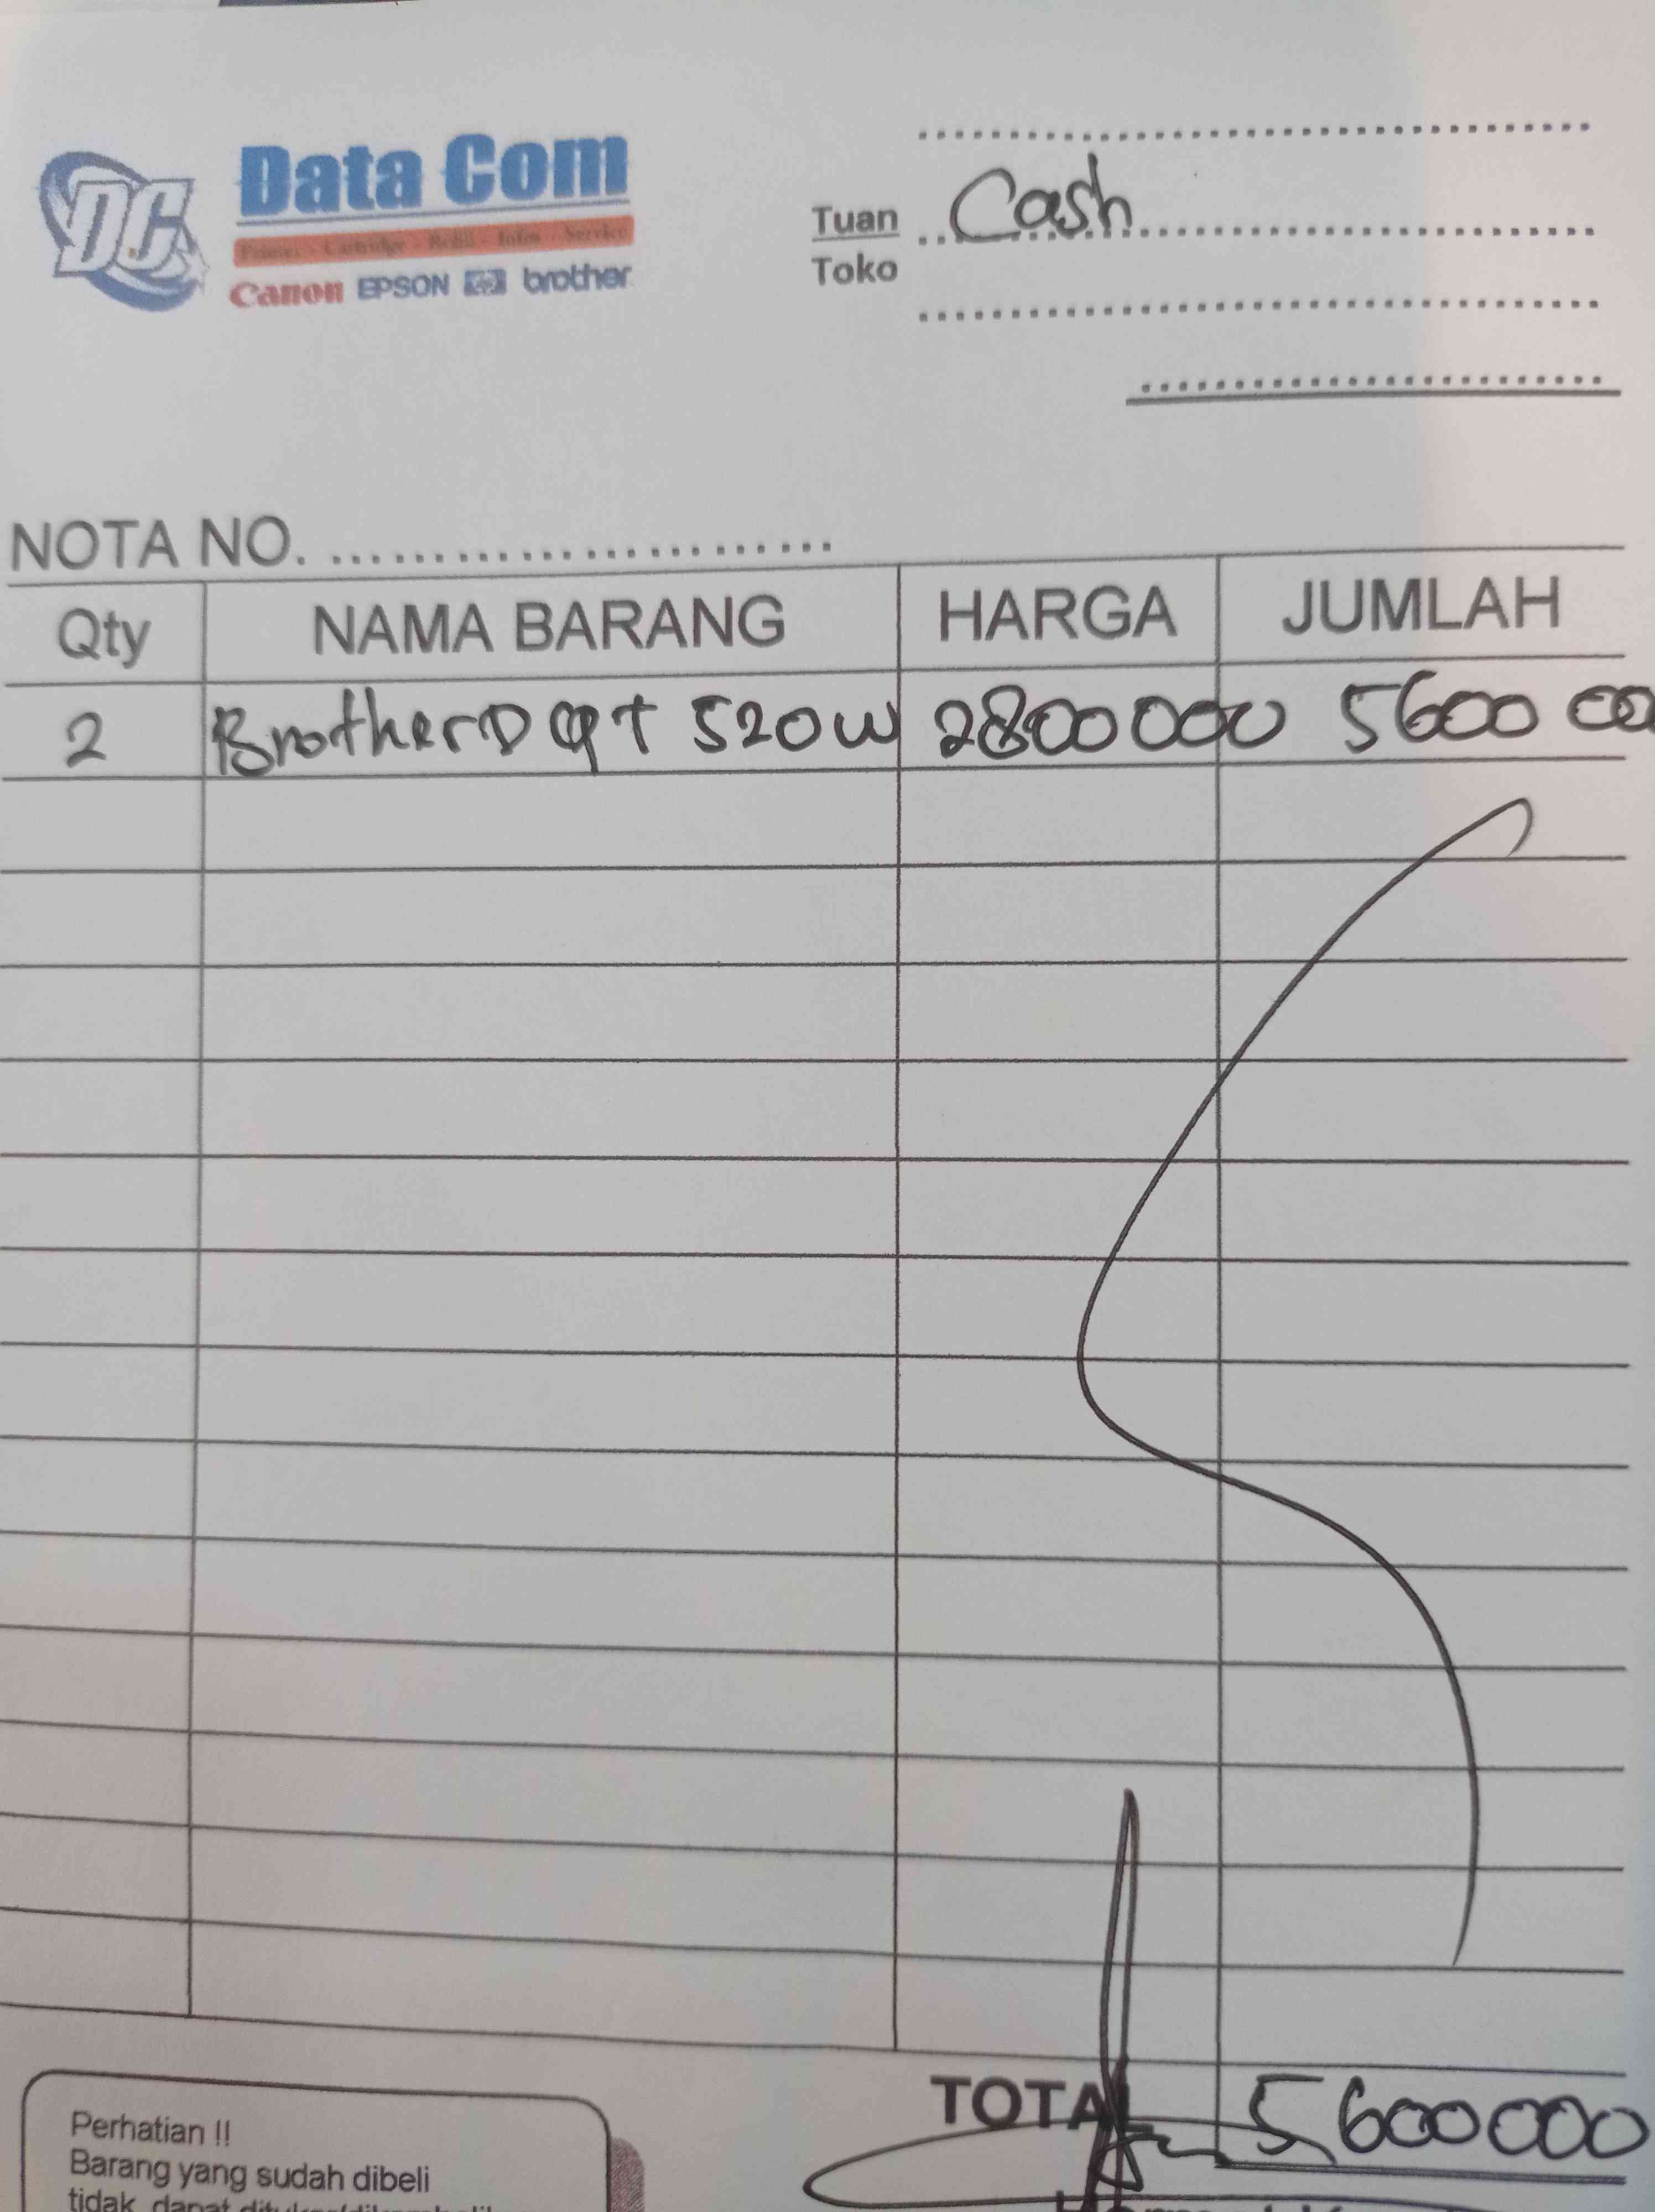 DC
Data Com
Printer - Cartridge - Refill - Infus - Service
Canon EPSON hp brother
Tuan Cash
Toko
NOTA NO.
Qty NAMA BARANG HARGA JUMLAH
2 Brother DCPT 520W 2800000 5600 000
TOTAL 5600000
Perhatian !!
Barang yang sudah dibeli
tidak dapat